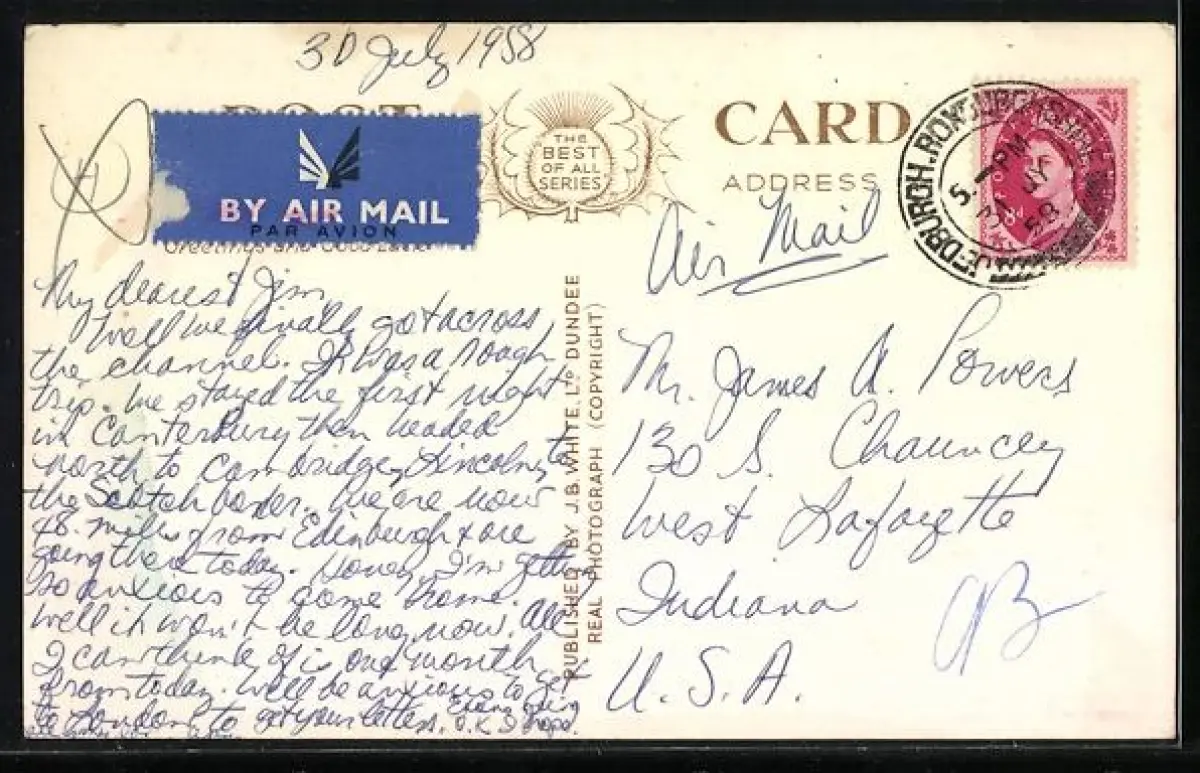 30 July 1958
POST CARD
THE
BEST
OF ALL
SERIES
BY AIR MAIL
PAR AVION
Greetings and Good Luck
ADDRESS
JEDBURGH. ROXBURGHSHIRE
5. PM
JY
58
Air Mail
My dearest Jim
Well we finally got across
the channel. It was a rough
trip. We stayed the first night
in Canterbury then headed
north to Cambridge, Lincoln, to
the Scotch border. We are now
48 miles from Edinburgh & are
going there today. Honey, I'm getting
so anxious to come home.
Well it won't be long now. All
I can think of is one month
from today. We'll be anxious to get
to London to get your letters. Everything
O.K. I hope.
PUBLISHED BY J.B. WHITE, LTD DUNDEE
REAL PHOTOGRAPH (COPYRIGHT)
Mr. James A. Powers
130 S. Chauncey
West Lafayette
Indiana
U.S.A.